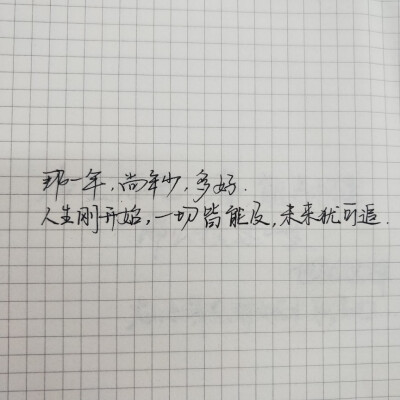 那一年,尚年少,多好.
人生刚开始,一切皆能及,未来犹可追.